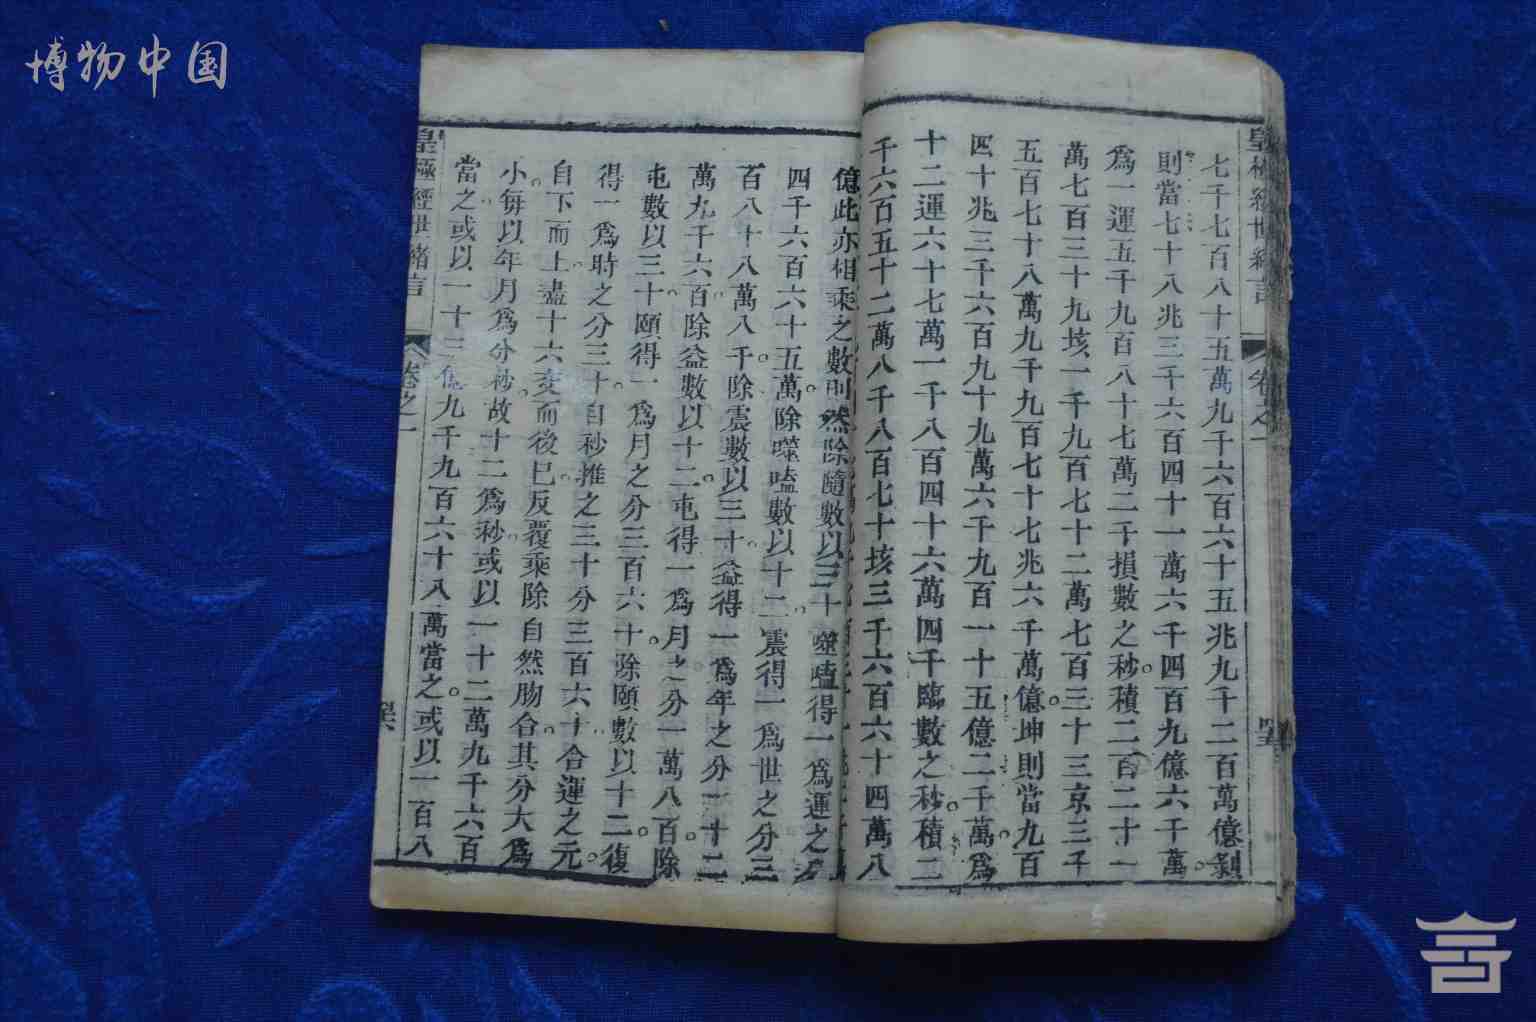 博物中国
皇極經世緒言
卷之一
七千七百八十五萬九千六百六十五兆九千二百萬億剝
則當七十八兆三千六百四十一萬六千四百九億六千萬
爲一運五千九百八十七萬二千損數之秒積二百二十一
萬七百三十九垓一千九百七十二萬七百三十三京三千
五百七十八萬九千九百七十七兆六千萬億坤則當九百
四十兆三千六百九十九萬六千九百一十五億二千萬爲
十二運六十七萬一千八百四十六萬四千臨數之秒積二
千六百五十二萬八千八百七十垓三千六百六十四萬八
億此亦相乘之數則然除隨數以三十噬嗑得一爲運之
四千六百六十五萬除噬嗑數以十二震得一爲世之分三
百八十八萬八千除震數以三十益得一爲年之分一十二
萬九千六百除益數以十二屯得一爲月之分一萬八百除
屯數以三十頤得一爲月之分三百六十除頤數以十二復
得一爲時之分三十自秒推之三十分三百六十合運之元
自下而上盡十六变而後已反覆乘除自然脗合其分大爲
小每以年月爲分秒故十二爲秒或以一十二萬九千六百
當之或以一十三億九千九百六十八萬當之或以一百八
皇極經世緒言
卷之一